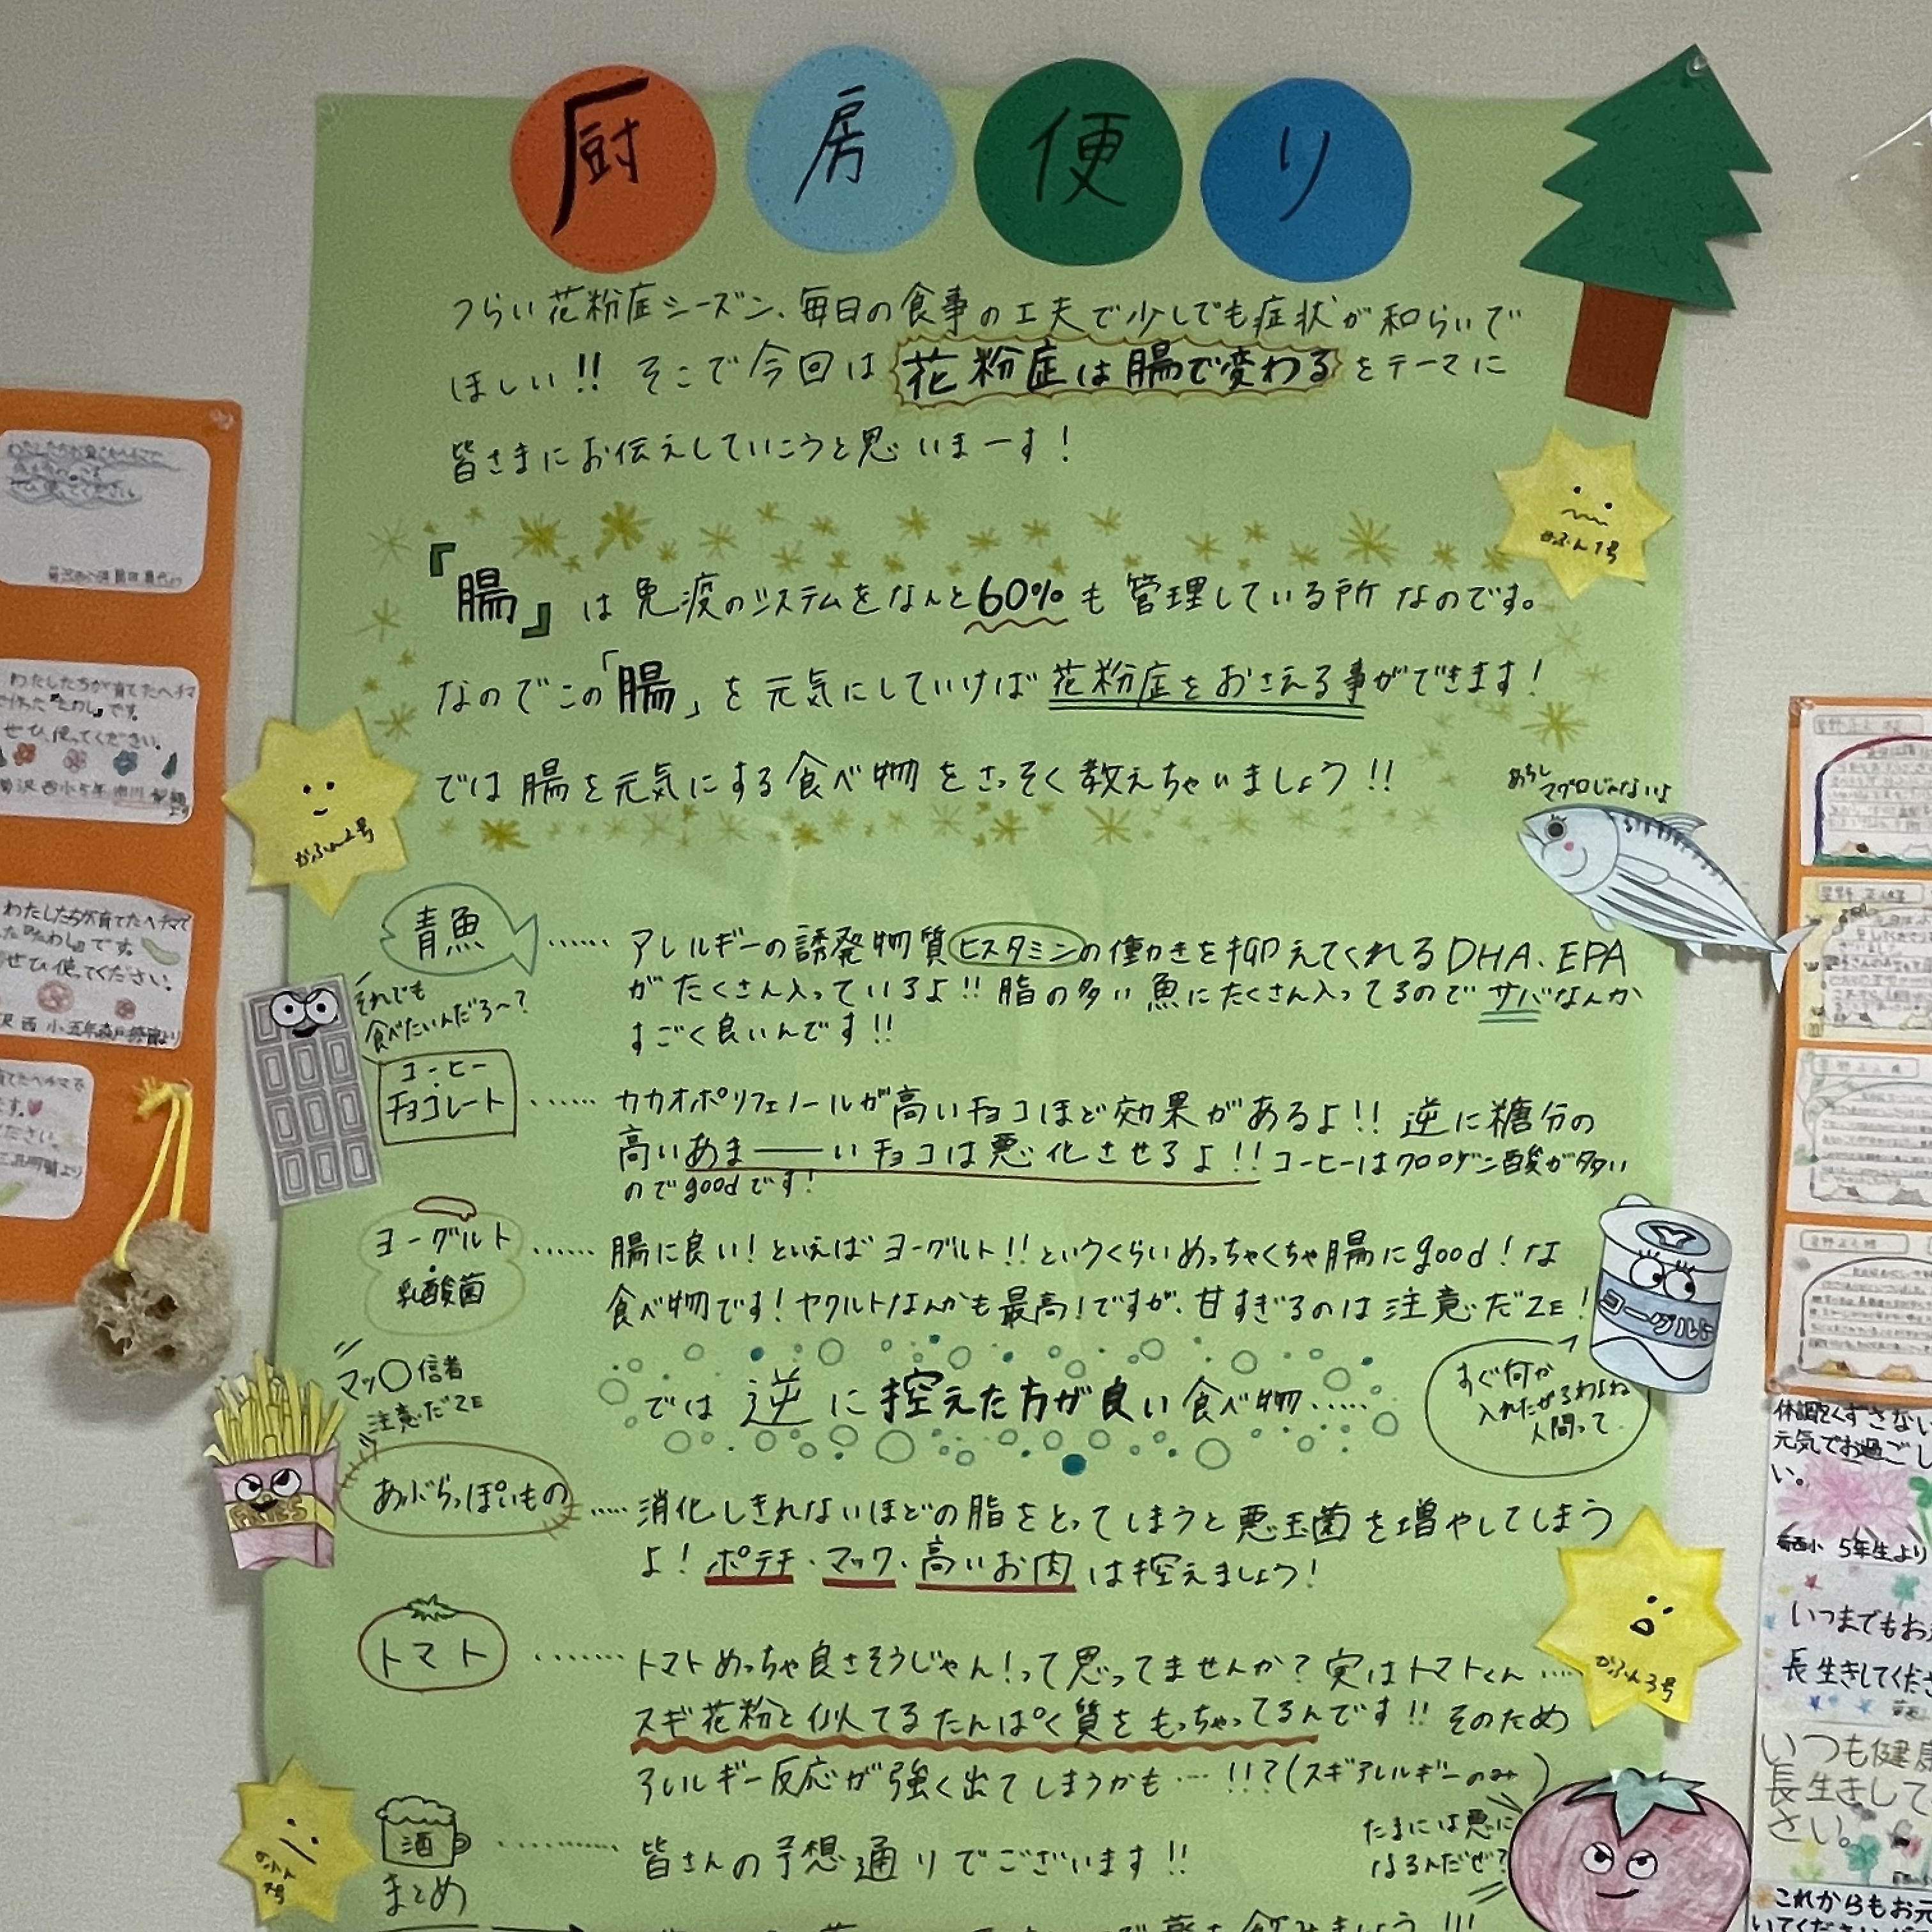 厨房便り
つらい花粉症シーズン、毎日の食事の工夫で少しでも症状が和らいで
ほしい!! そこで今回は 花粉症は腸で変わる をテーマに
皆さまにお伝えしていこうと思いまーす!
かふん1号
『腸』は免疫のシステムをなんと60%も管理している所なのです。
なのでこの「腸」を元気にしていけば花粉症をおさえる事ができます!
では腸を元気にする食べ物をさっそく教えちゃいましょう!!
かふん2号
あちし
マグロじゃないよ
青魚 …… アレルギーの誘発物質ヒスタミンの働かきを抑えてくれるDHA、EPA
がたくさん入っているよ!! 脂の多い魚にたくさん入ってるのでサバなんか
すごく良いんです!!
それでも
食べたいんだろ〜?
コーヒー
・
チョコレート …… カカオポリフェノールが高いチョコほど効果があるよ!! 逆に糖分の
高いあま――いチョコは悪化させるよ!! コーヒーはクロロゲン酸が多い
のでgoodです!
ヨーグルト
・
乳酸菌 …… 腸に良い!といえばヨーグルト!!というくらいめっちゃくちゃ腸にgood!な
食べ物です!ヤクルトなんかも最高!ですが、甘すぎるのは注意だZE!
ヨーグルト
すぐ何か
入れたがるわよね
人間って
マッ〇信者
注意だZE
FRIES
では逆に控えた方が良い食べ物……
あぶらっぽいもの …… 消化しきれないほどの脂をとってしまうと悪玉菌を増やしてしまう
よ! ポテチ・マック・高いお肉は控えましょう!
トマト …… トマトめっちゃ良さそうじゃん!って思ってませんか? 実はトマトくん……
スギ花粉と似てるたんぱく質をもっちゃってるんです!! そのため
アレルギー反応が強く出てしまうかも…!!?(スギアレルギーのみ)
かふん3号
たまには悪に
なるんだぜ?
酒 …… 皆さんの予想通りでございます!!
まとめ
わたしたちが育てたヘチマ
で作った『たわし』です。
ぜひ、使ってください。
わたしたちが育てたヘチマで
た『たわし』です。
ぜひ使ってください。
体調をくずさない
元気でお過ごし
い。
5年生より
いつまでもお
長生きしてくださ
いつも健康
長生きして
さい。
これからもお